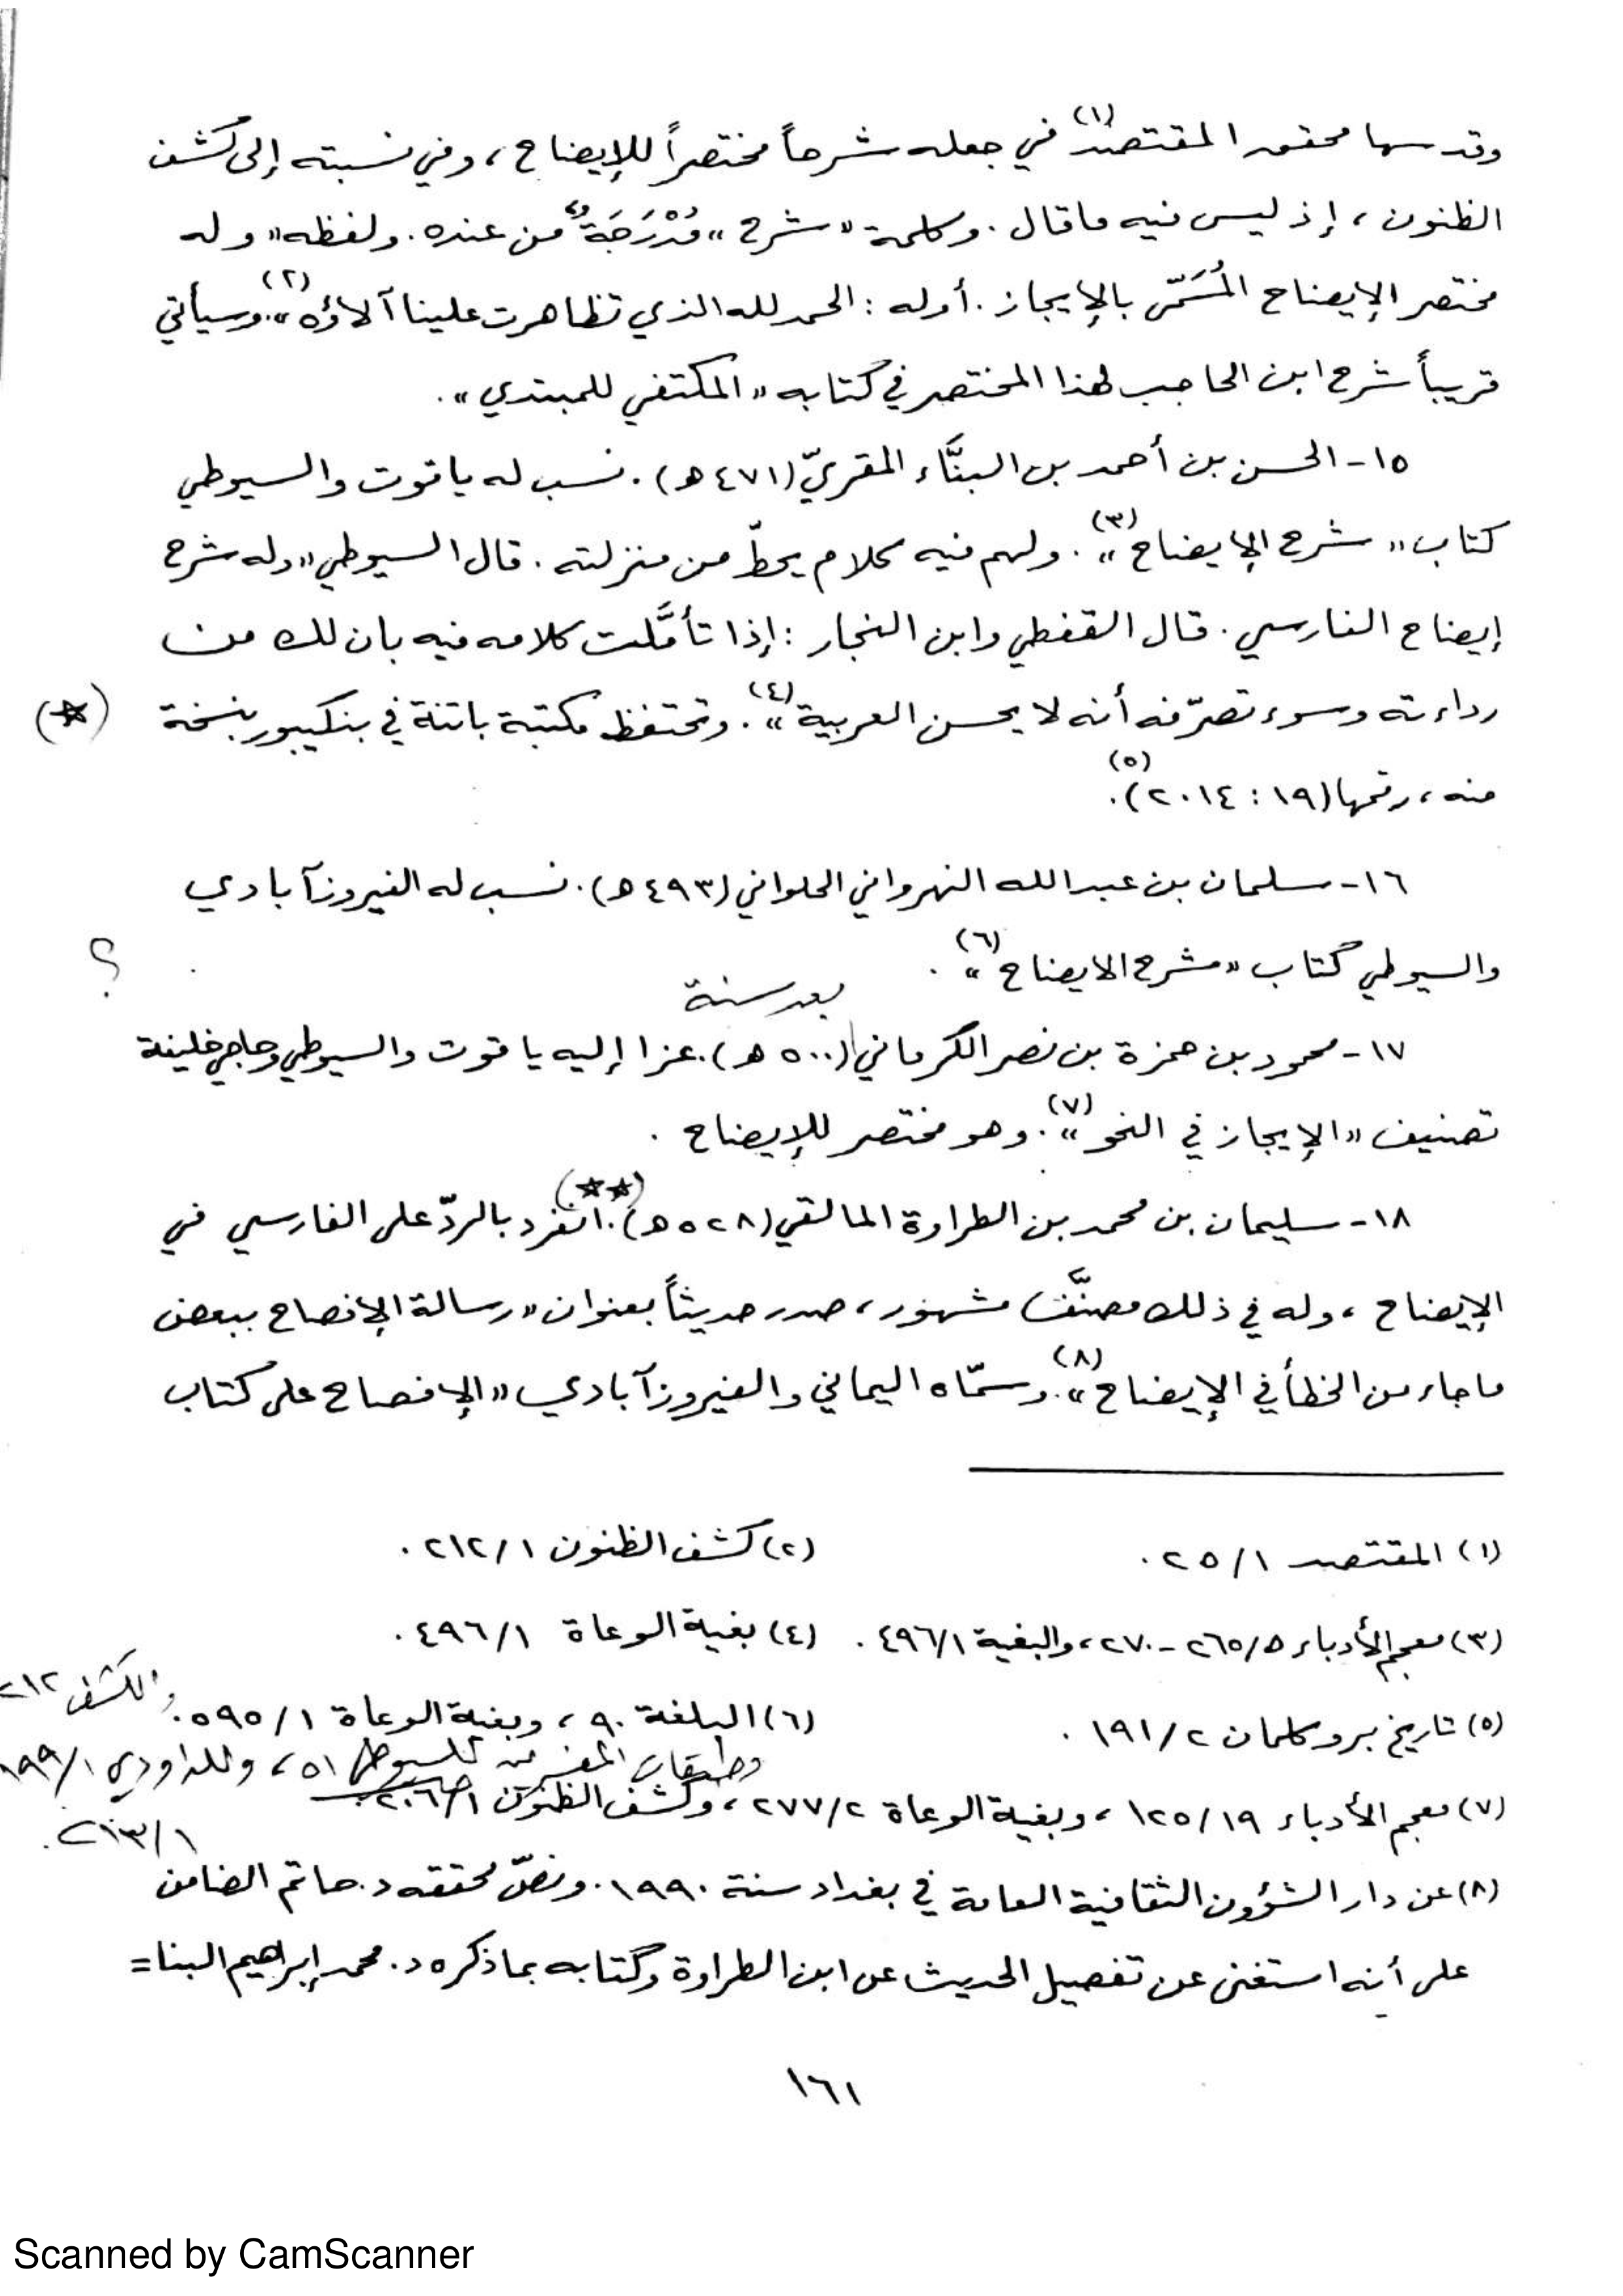 وقد سها محقق المقتصد(١) في جعله شرحاً مختصراً للإيضاح، وفي نسبته إلى كشف
الظنون، إذ ليس فيه ما قال. وكلمة «شرح» مُدْرَجَةٌ من عنده. ولفظه «وله
مختصر الإيضاح المُسَمّى بالإيجاز. أوله: الحمد لله الذي تظاهرت علينا آلاؤه»(٢). وسيأتي
قريباً شرح ابن الحاجب لهذا المختصر في كتابه «المكتفي للمبتدي».
١٥- الحسن بن أحمد بن البنَّاء المقريّ (٤٧١ هـ). نسب له ياقوت والسيوطي
كتاب «شرح الإيضاح»(٣). ولهم فيه كلام يحطّ من منزلته. قال السيوطي «وله شرح
إيضاح الفارسي. قال القفطي وابن النجار: إذا تأمَّلت كلامه فيه بان لك من
رداءته وسوء تصرّفه أنه لا يحسن العربية»(٤). وتحتفظ مكتبة باتنة في بنكيبور بنسخة (☆)
منه، رقمها (١٩ : ٢٠١٤)(٥).
١٦- سلمان بن عبد الله النهرواني الحلواني (٤٩٣ هـ). نسب له الفيروزآبادي
والسيوطي كتاب «شرح الايضاح»(٦). ؟
بعد سنة
١٧- محمود بن حمزة بن نصر الكرماني (٥٠٠ هـ). عزا إليه ياقوت والسيوطي وحاجي خليفة
تصنيف «الإيجاز في النحو»(٧). وهو مختصر للإيضاح.
١٨- سليمان بن محمد بن الطراوة المالقي (٥٢٨ هـ)(☆☆). انفرد بالردّ على الفارسي في
الإيضاح، وله في ذلك مصنَّف مشهور، صدر حديثاً بعنوان «رسالة الإفصاح ببعض
ما جاء من الخطأ في الإيضاح»(٨). وسمّاه اليماني والفيروزآبادي «الإفصاح على كتاب
(١) المقتصد ٢٥/١. (٢) كشف الظنون ٢١٢/١.
(٣) معجم الأدباء ٢٦٥/٥ - ٢٧٠، والبغية ٤٩٦/١. (٤) بغية الوعاة ٤٩٦/١.
(٥) تاريخ بروكلمان ١٩١/٢. (٦) البلغة ٩٠، وبغية الوعاة ٥٩٥/١. والكشف ٢١٢
وطبقات المفسرين للسيوطي ٥١، وللداودي ١٩٩/١
(٧) معجم الأدباء ١٢٥/١٩، وبغية الوعاة ٢٧٧/٢، وكشف الظنون ٢٠٦/١
٢١٣/١.
(٨) عن دار الشؤون الثقافية العامة في بغداد سنة ١٩٩٠. ونصّ محققه د. حاتم الضامن
على أنه استغنى عن تفصيل الحديث عن ابن الطراوة وكتابه بما ذكره د. محمد إبراهيم البنا =
١٦١
Scanned by CamScanner